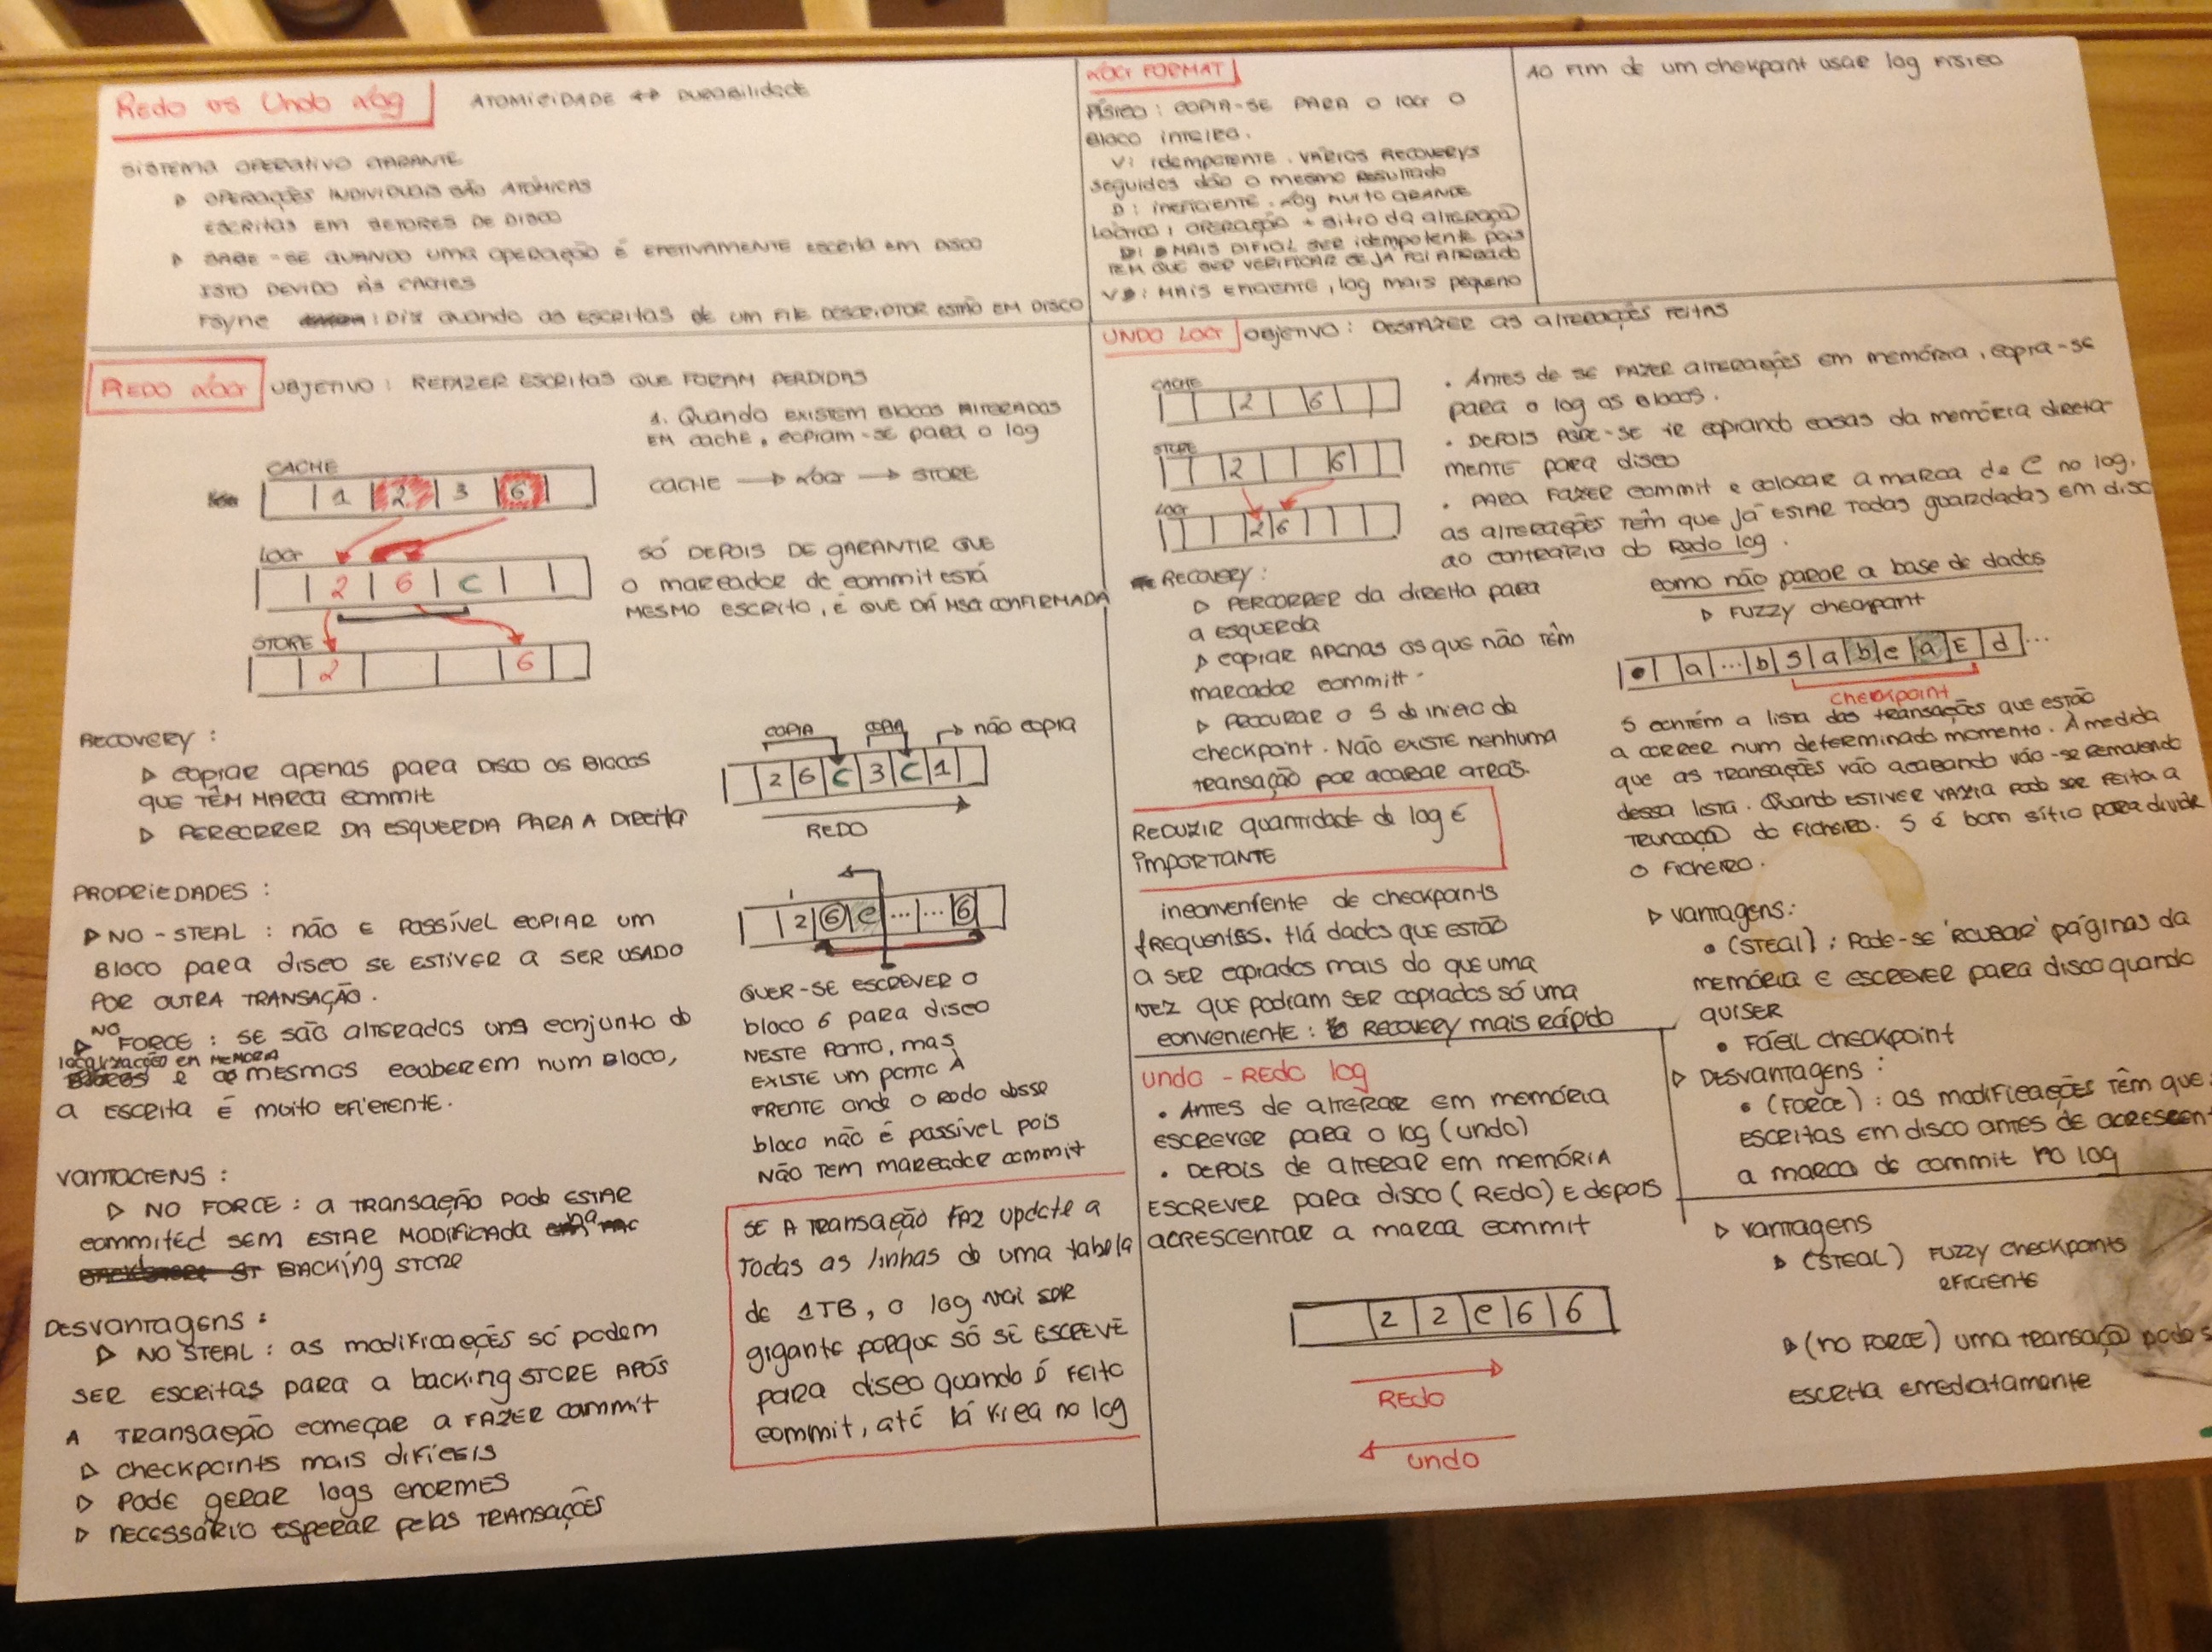 Redo vs Undo Log
ATOMICIDADE ↔ DURABILIDADE
SISTEMA OPERATIVO GARANTE
▷ OPERAÇÕES INDIVIDUAIS SÃO ATÓMICAS
ESCRITAS EM SETORES DE DISCO
▷ SABE-SE QUANDO UMA OPERAÇÃO É EFETIVAMENTE ESCRITA EM DISCO
ISTO DEVIDO ÀS CACHES
FSYNC : DIZ QUANDO AS ESCRITAS DE UM FILE DESCRIPTOR ESTÃO EM DISCO
LOG FORMAT
FÍSICO : COPIA-SE PARA O LOG O
BLOCO INTEIRO.
V: IDEMPOTENTE. VÁRIOS RECOVERYS
SEGUIDOS DÃO O MESMO RESULTADO
D: INEFICIENTE. LOG MUITO GRANDE
LÓGICO : OPERAÇÃO + SITIO DA ALTERAÇÃO
D: MAIS DIFICIL SER IDEMPOTENTE POIS
TEM QUE SER VERIFICAR SE JÁ FOI ALTERADO
V: MAIS EFICIENTE, LOG MAIS PEQUENO
AO FIM DE UM CHEKPOINT USAR LOG FISICO
REDO LOG
OBJETIVO : REFAZER ESCRITAS QUE FORAM PERDIDAS
1. QUANDO EXISTEM BLOCOS ALTERADOS
EM CACHE, COPIAM-SE PARA O LOG
CACHE → LOG → STORE
CACHE
1 2 3 6
LOG
2 6 C
STORE
2 6
SÓ DEPOIS DE GARANTIR QUE
O MARCADOR DE COMMIT ESTÁ
MESMO ESCRITO, É QUE DÁ MSG CONFIRMADA
RECOVERY :
▷ COPIAR APENAS PARA DISCO OS BLOCOS
QUE TÊM MARCA COMMIT
▷ PERCORRER DA ESQUERDA PARA A DIREITA
COPIA COPIA → NÃO COPIA
2 6 C 3 C 1
REDO
PROPRIEDADES :
▷ NO-STEAL : NÃO E POSSÍVEL COPIAR UM
BLOCO PARA DISCO SE ESTIVER A SER USADO
POR OUTRA TRANSAÇÃO.
▷ NO FORCE : SE SÃO ALTERADOS UNS CONJUNTO DO
LOCALIZAÇÃO EM MEMORIA E OS MESMOS COUBEREM NUM BLOCO,
A ESCRITA É MUITO EFICIENTE.
2 6 C ... ... 6
QUER-SE ESCREVER O
BLOCO 6 PARA DISCO
NESTE PONTO, MAS
EXISTE UM PONTO À
FRENTE ONDE O REDO DESSE
BLOCO NÃO É POSSIVEL POIS
NÃO TEM MARCADOR COMMIT
VANTAGENS :
▷ NO FORCE : A TRANSAÇÃO PODE ESTAR
COMMITED SEM ESTAR MODIFICADA NA
BACKING STORE
DESVANTAGENS :
▷ NO STEAL : AS MODIFICAÇÕES SÓ PODEM
SER ESCRITAS PARA A BACKING STORE APÓS
A TRANSAÇÃO COMEÇAR A FAZER COMMIT
▷ CHECKPOINTS MAIS DIFÍCEIS
▷ PODE GERAR LOGS ENORMES
▷ NECESSÁRIO ESPERAR PELAS TRANSAÇÕES
SE A TRANSAÇÃO FAZ UPDATE A
TODAS AS LINHAS DE UMA TABELA
DE 1TB, O LOG VAI SER
GIGANTE PORQUE SÓ SE ESCREVE
PARA DISCO QUANDO É FEITO
COMMIT, ATÉ LÁ FICA NO LOG
UNDO LOG
OBJETIVO : DESFAZER AS ALTERAÇÕES FEITAS
CACHE
2 6
STORE
2 6
LOG
2 6
. ANTES DE SE FAZER ALTERAÇÕES EM MEMÓRIA, COPIA-SE
PARA O LOG OS BLOCOS.
. DEPOIS PODE-SE IR COPIANDO COISAS DA MEMÓRIA DIRETA-
MENTE PARA DISCO
. PARA FAZER COMMIT E COLOCAR A MARCA DE C NO LOG,
AS ALTERAÇÕES TÊM QUE JÁ ESTAR TODAS GUARDADAS EM DISC
AO CONTRARIO DO REDO LOG .
RECOVERY :
▷ PERCORRER DA DIREITA PARA
A ESQUERDA
▷ COPIAR APENAS OS QUE NÃO TÊM
MARCADOR COMMITT
▷ PROCURAR O S DO INICIO DO
CHECKPOINT. NÃO EXISTE NENHUMA
TRANSAÇÃO POR ACABAR ATRÁS.
REDUZIR QUANTIDADE DO LOG É
IMPORTANTE
INCONVENIENTE DE CHECKPOINTS
FREQUENTES. HÁ DADOS QUE ESTÃO
A SER COPIADOS MAIS DO QUE UMA
VEZ QUE PODIAM SER COPIADOS SÓ UMA
CONVENIENTE : RECOVERY MAIS RÁPIDO
COMO NÃO PARAR A BASE DE DADOS
▷ FUZZY CHECKPOINT
a ... b S a b c a E d ...
CHECKPOINT
S CONTÉM A LISTA DAS TRANSAÇÕES QUE ESTÃO
A CORRER NUM DETERMINADO MOMENTO. À MEDIDA
QUE AS TRANSAÇÕES VÃO ACABANDO VÃO-SE REMOVENDO
DESSA LISTA. QUANDO ESTIVER VAZIA PODE SER FEITA A
TRUNCAÇÃO DO FICHEIRO. S É BOM SÍTIO PARA DIVIDIR
O FICHEIRO.
▷ VANTAGENS:
• (STEAL) : PODE-SE 'ROUBAR' PÁGINAS DA
MEMÓRIA E ESCREVER PARA DISCO QUANDO
QUISER
• FÁCIL CHECKPOINT
▷ DESVANTAGENS :
• (FORCE) : AS MODIFICAÇÕES TÊM QUE
ESCRITAS EM DISCO ANTES DE ACRESCEN
A MARCA DE COMMIT NO LOG
UNDO - REDO LOG
• ANTES DE ALTERAR EM MEMÓRIA
ESCREVER PARA O LOG (UNDO)
• DEPOIS DE ALTERAR EM MEMÓRIA
ESCREVER PARA DISCO (REDO) E DEPOIS
ACRESCENTAR A MARCA COMMIT
2 2 C 6 6
REDO
UNDO
▷ VANTAGENS
▷ (STEAL) FUZZY CHECKPOINTS
EFICIENTE
▷ (NO FORCE) UMA TRANSAÇÃO PODE S
ESCRITA EMEDIATAMENTE